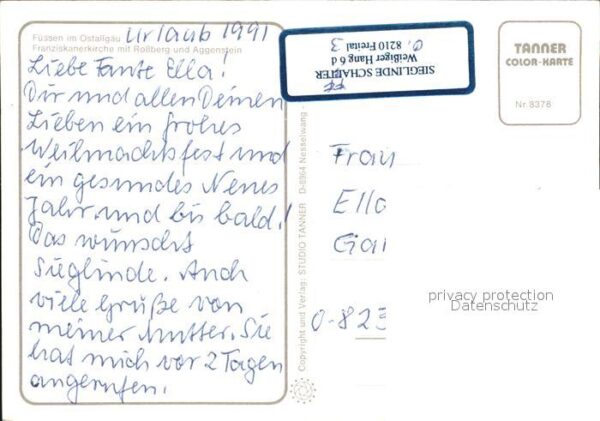 Füssen im Ostallgäu
Franziskanerkirche mit Roßberg und Aggenstein
Urlaub 1991
Liebe Tante Ella!
Dir und allen Deinen
Lieben ein frohes
Weihnachtsfest und
ein gesundes Neues
Jahr und bis bald!
Das wünscht
Sieglinde. Auch
viele Grüße von
meiner Mutter. Sie
hat mich vor 2 Tagen
angerufen.
Copyright und Verlag: STUDIO TANNER D-8964 Nesselwang -
SIEGLINDE SCHALTER
Weißiger Hang 6 d
0. 8210 Freital 3
TANNER
COLOR-KARTE
Nr. 8376
Frau
Ella
O-823
privacy protection
Datenschutz